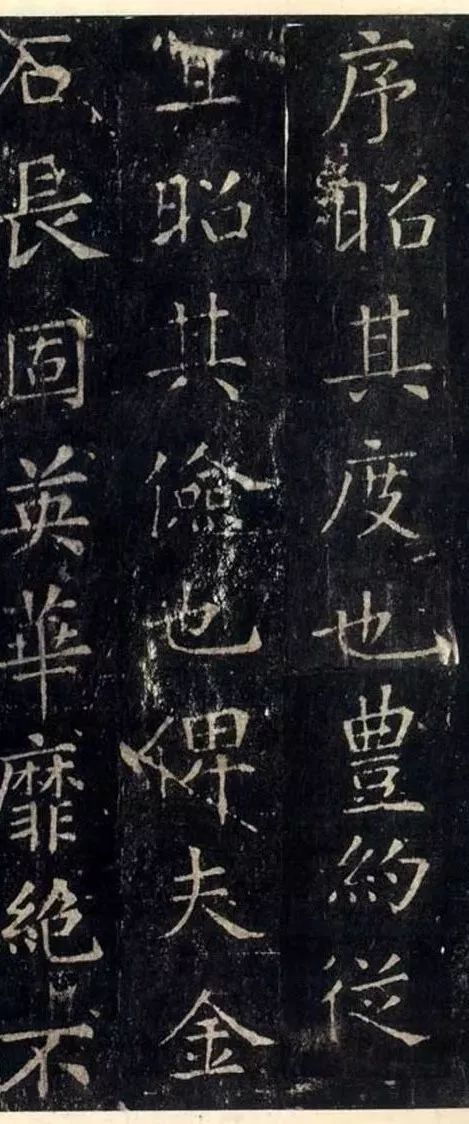 序昭其度也豊約從
宜昭其儉也俾夫金
石長固英華靡絕不